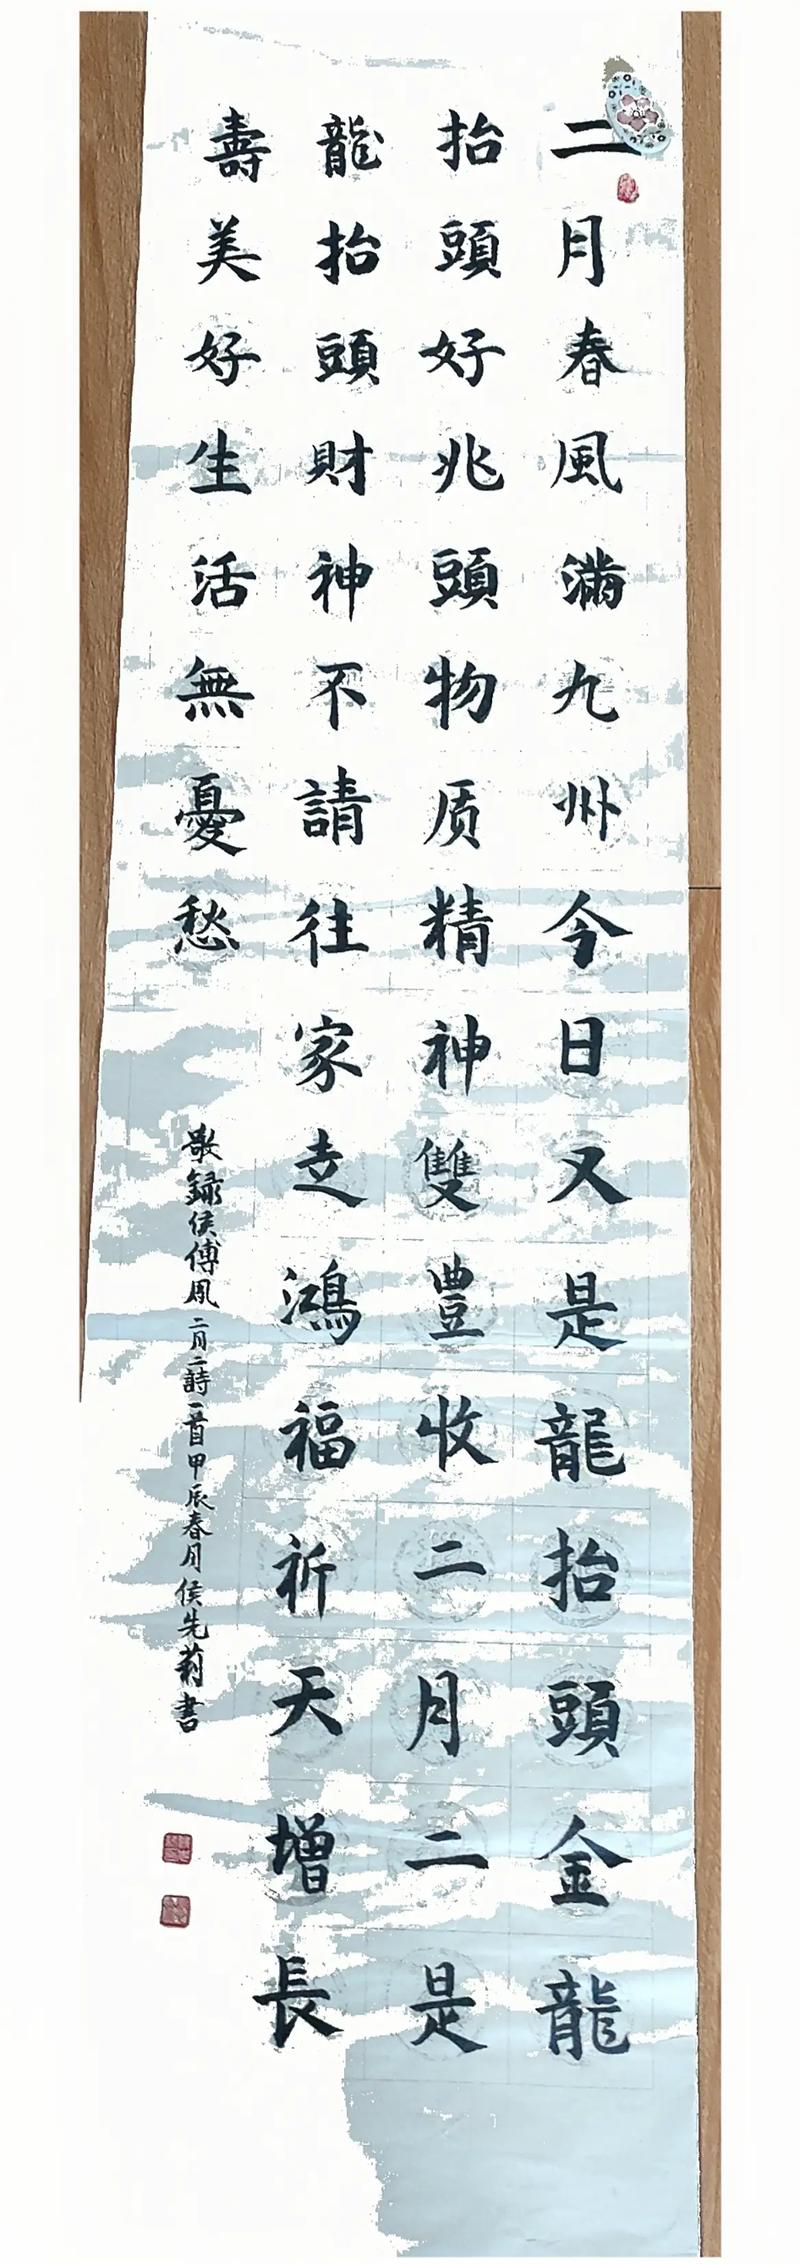 二月春風滿九州今日又是龍抬頭金龍
抬頭好兆頭物质精神雙豊收二月二是
龍抬頭財神不請往家走鴻福祈天增長
壽美好生活無憂愁
敬録侯傅凤二月二詩一首甲辰春月侯先莉書